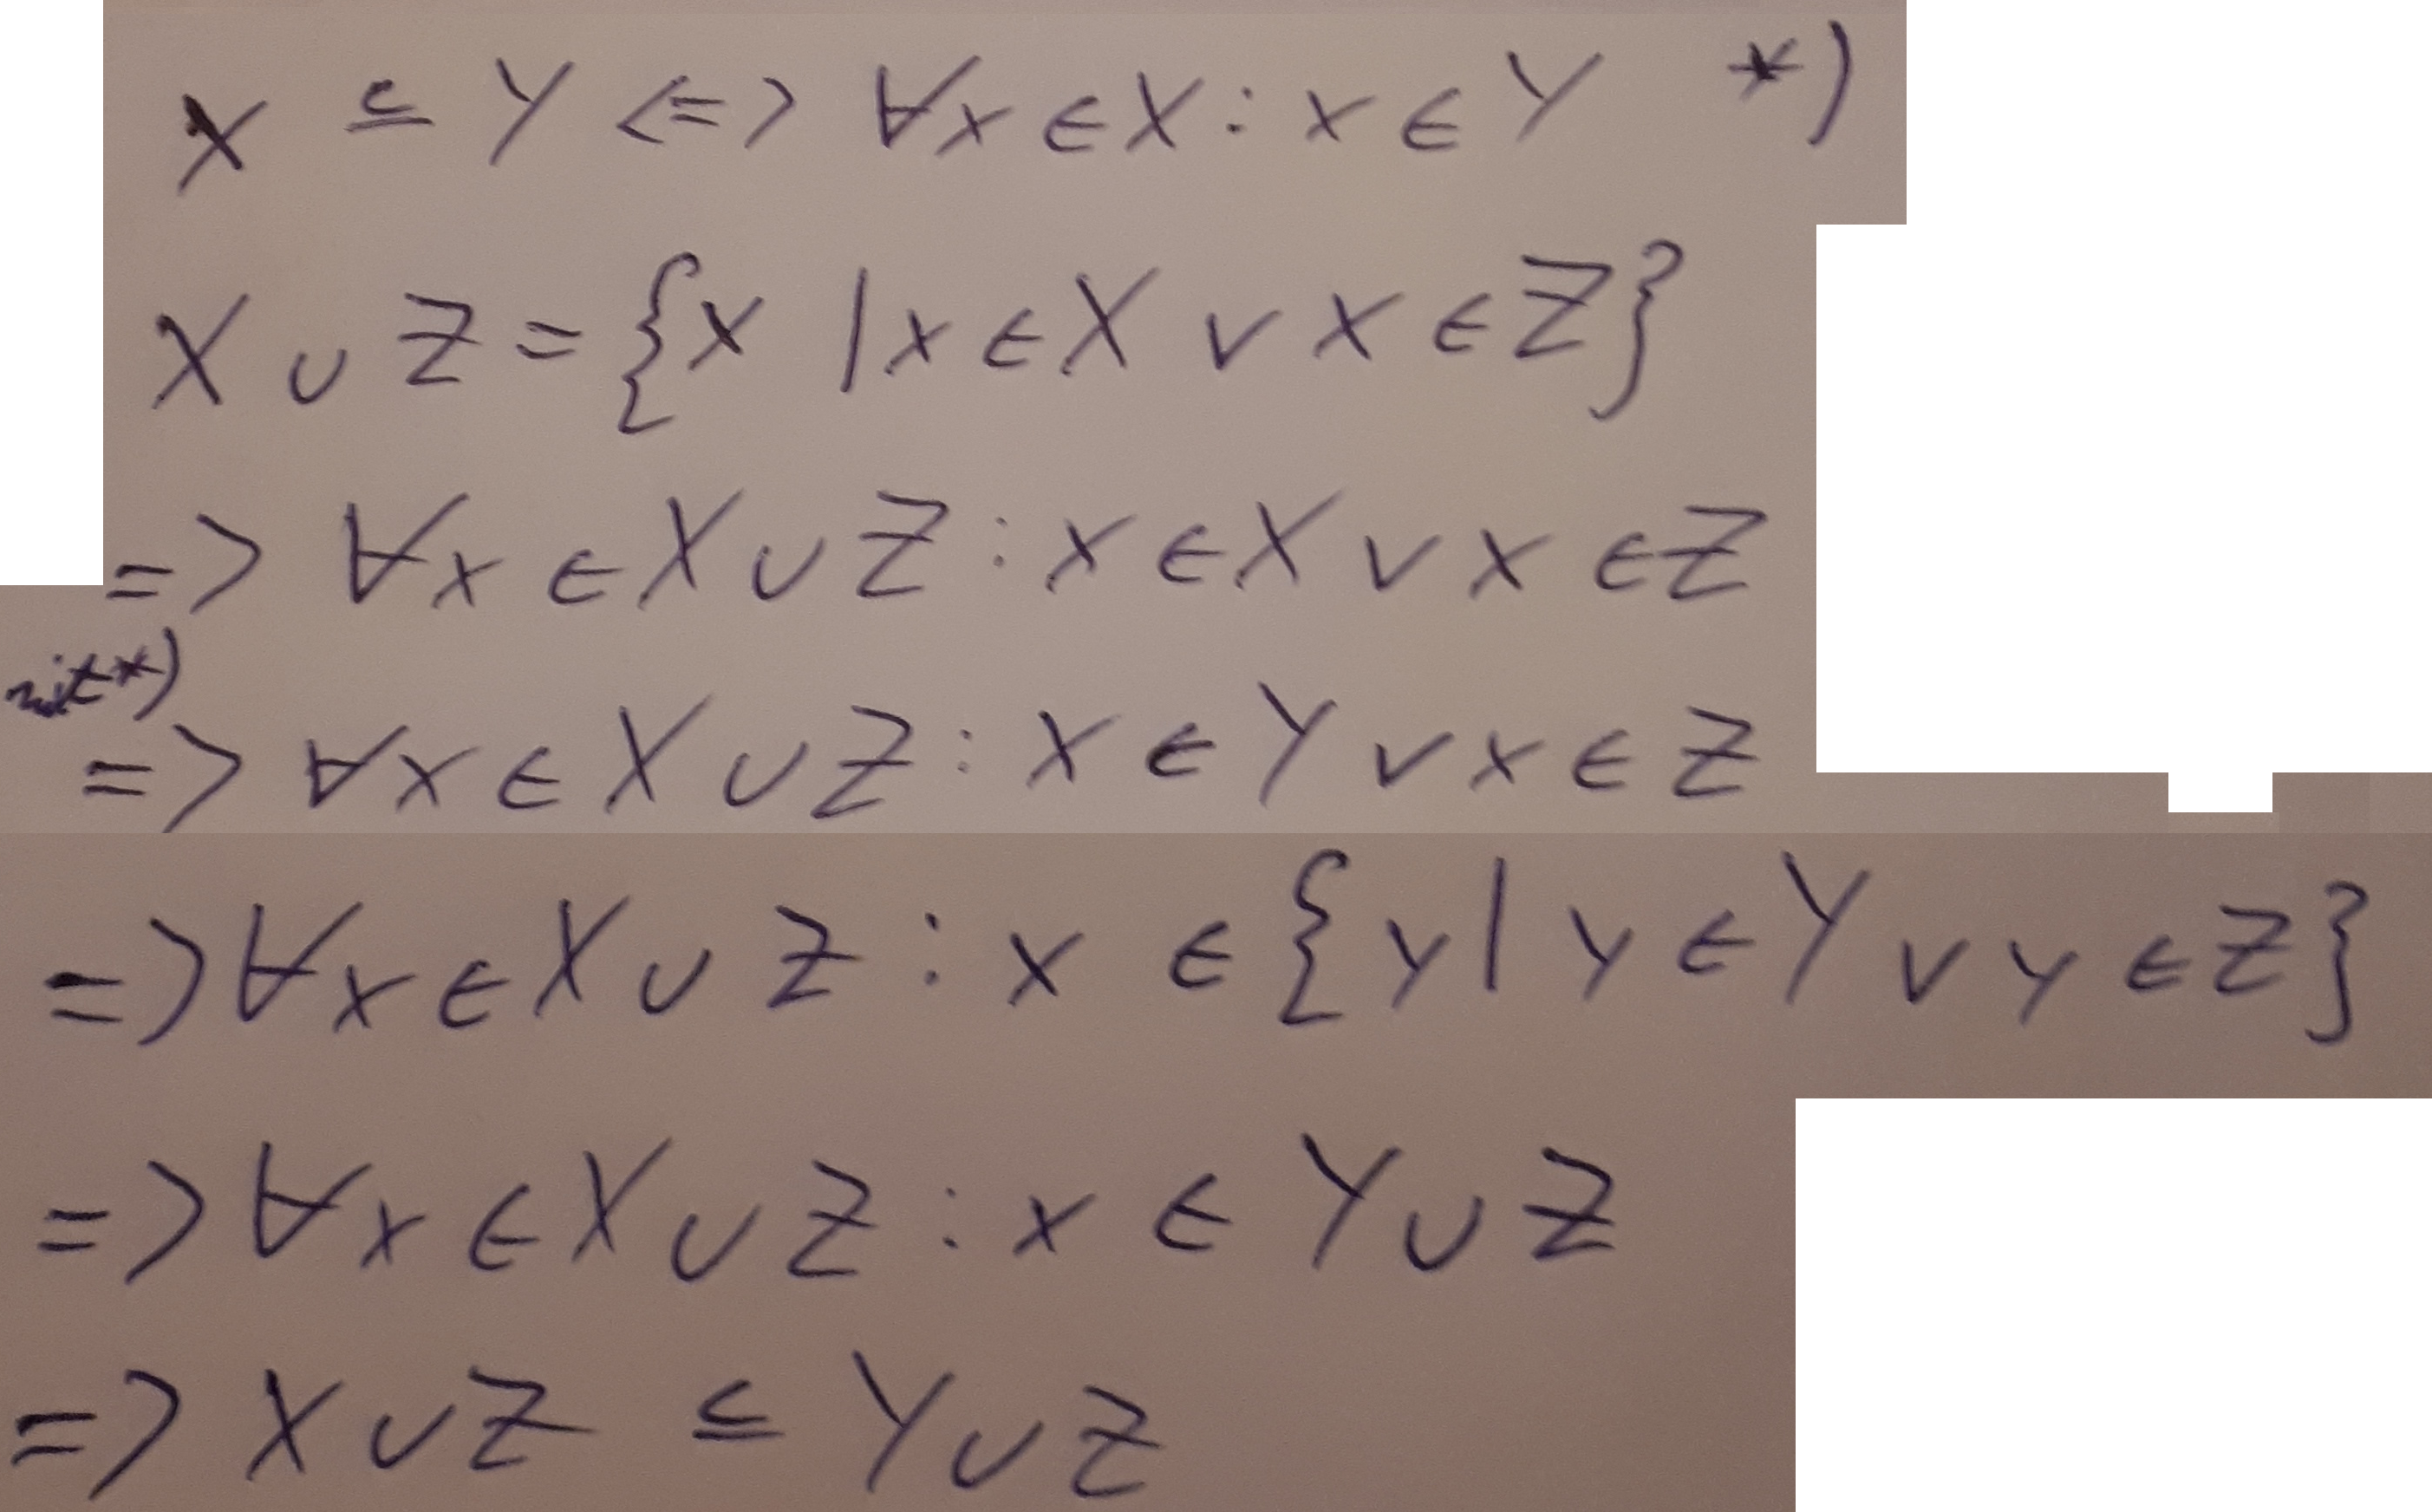 X ⊆ Y <=> ∀x ∈ X : x ∈ Y *)
X ∪ Z = {x | x ∈ X ∨ x ∈ Z}
=> ∀x ∈ X ∪ Z : x ∈ X ∨ x ∈ Z
mit *)
=> ∀x ∈ X ∪ Z : x ∈ Y ∨ x ∈ Z
=> ∀x ∈ X ∪ Z : x ∈ {y | y ∈ Y ∨ y ∈ Z}
=> ∀x ∈ X ∪ Z : x ∈ Y ∪ Z
=> X ∪ Z ⊆ Y ∪ Z